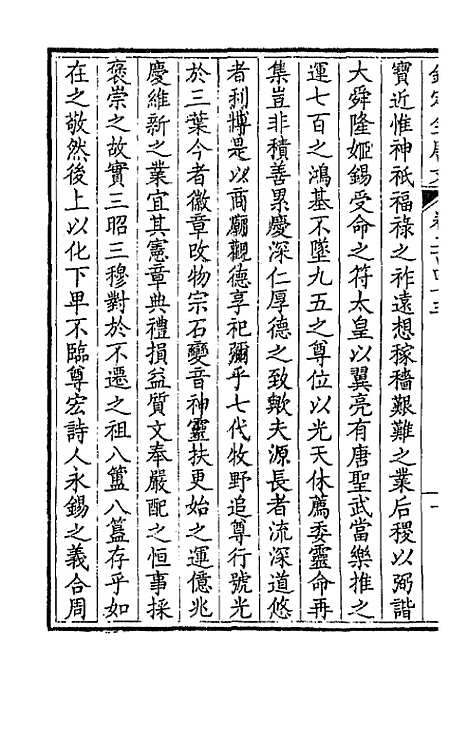 寶近惟神祇福祿之祚遠想稼穡艱難之業后稷以弼諧
大舜隆姬錫受命之符太皇以翼亮有唐聖武當樂推之
運七百之鴻基不墜九五之尊位以光天休薦委靈命再
集豈非積善累慶深仁厚德之致歟夫源長者流深道悠
者利博是以商廟觀德享祀彌乎七代牧野追尊行號光
於三葉今者徽章改物宗石變音神靈扶更始之運億兆
慶維新之業宜其憲章典禮損益質文奉嚴配之恒事採
褒崇之故實三昭三穆對於不遷之祖八簠八簋存乎如
在之敬然後上以化下卑不臨尊宏詩人永錫之義合周